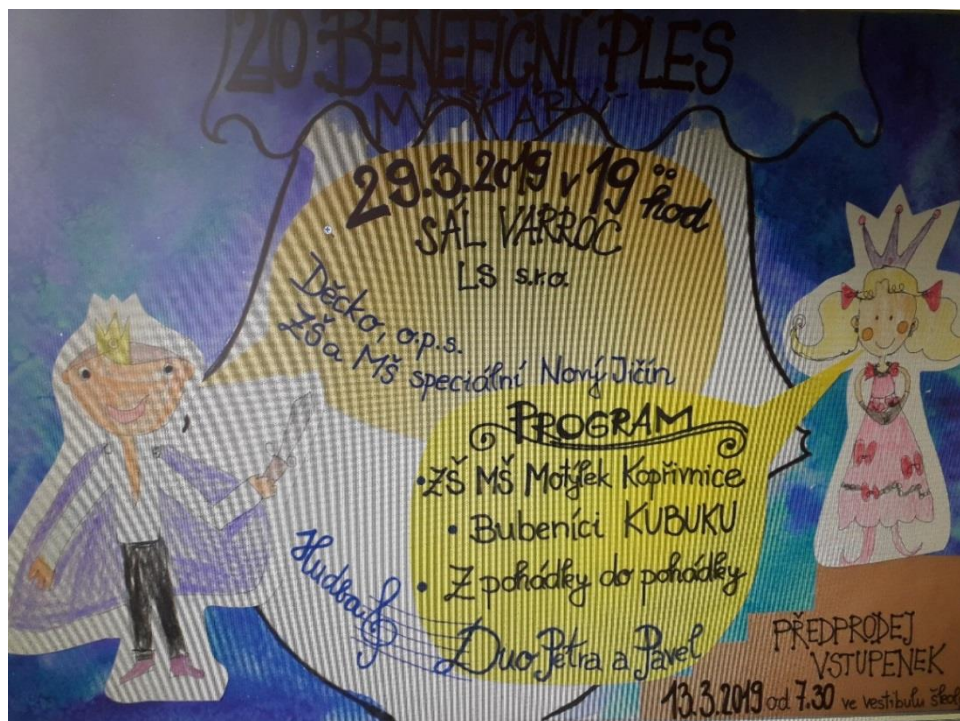 20 BENEFIČNÍ PLES
MAŠKARNÍ
29.3.2019 v 19 hod
SÁL VARROC
LS s.r.o.
Děcko, o.p.s.
ZŠ a MŠ speciální Nový Jičín
PROGRAM
•ZŠ MŠ Motýlek Kopřivnice
• Bubeníci KUBUKU
• Z pohádky do pohádky
Hudba
Duo Petra a Pavel
PŘEDPRODEJ
VSTUPENEK
13.3.2019 od 7.30 ve vestibulu školy